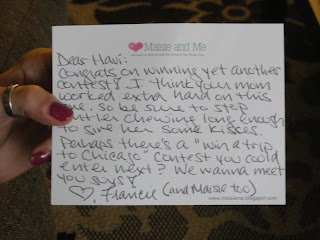 Maisie and Me
Dear Havi:
Congrats on winning yet another
contest! I think your mom
worked extra hard on this
one, so be sure to stop
chewing long enough
to give her some kisses.
Perhaps there's a "win a trip
to Chicago" contest you could
enter next? We wanna meet
you guys!
♡, Francie (and Maisie too)
www.maisieme.blogspot.com